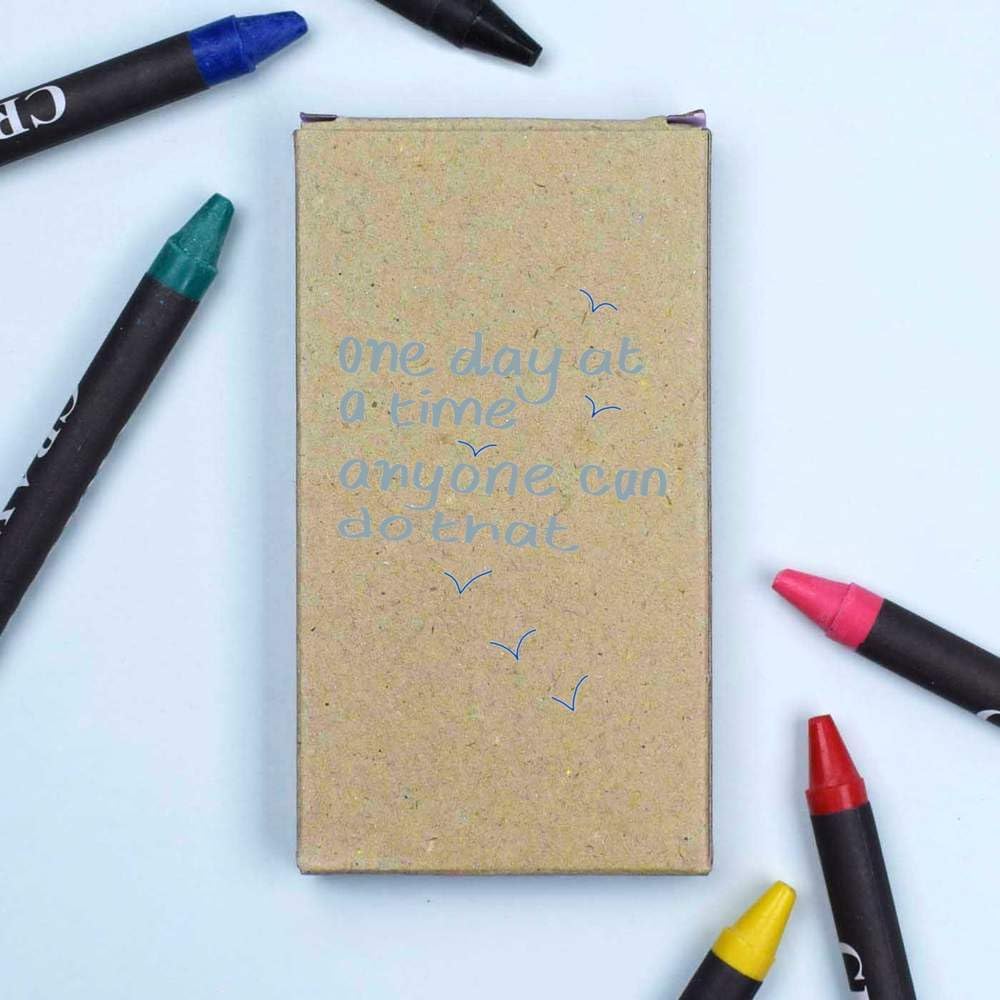 one day at
a time
anyone can
do that
CR
CRAY
C
C